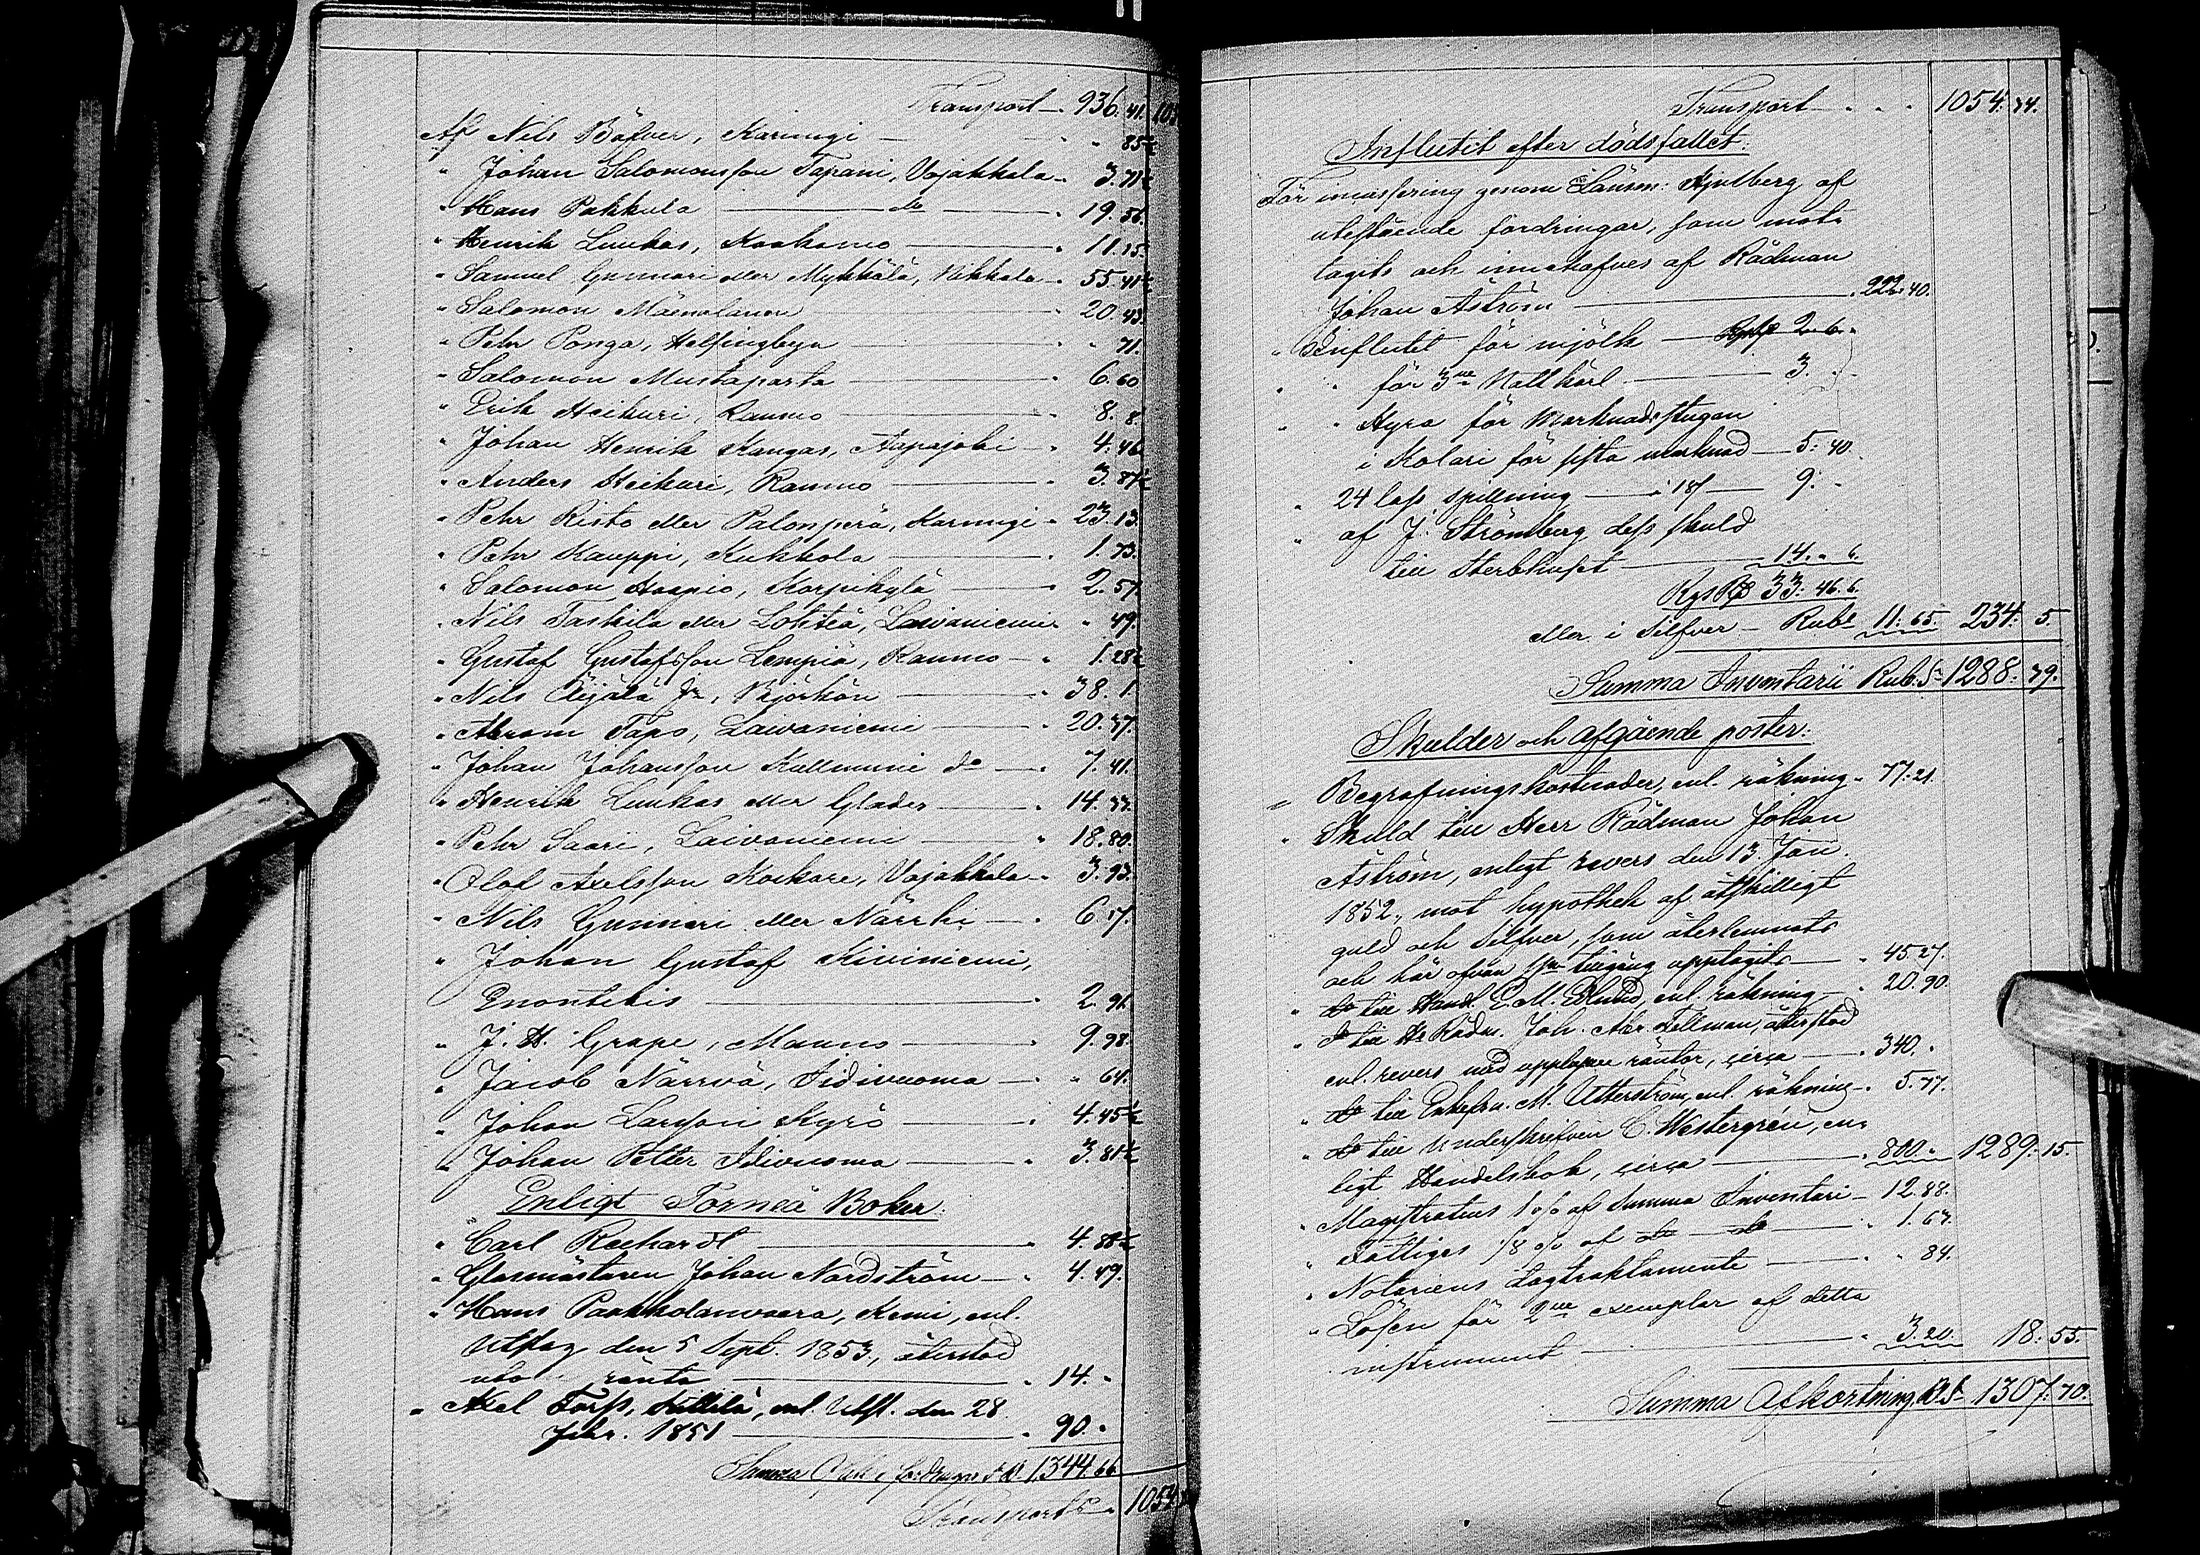 Transport 936.41.
Af Nils Bäfver, Karungi " 85½
" Johan Salomonsson Tapani, Vojakkala 3.71½
" Hans Pakkula do 19.56.
" Henrik Luukas, Kaakamo 11.15.
" Samuel Gunnari eller Mykkälä, Nikkala 55.41½
" Salomon 20.43.
" Pehr Ponga, Helsingbyn " 71.
" Salomon Mustaparta 6.60
" Erik Heikuri, Raumo 8.8.
" Johan Henrik Kangas, Aapajoki 4.46
" Anders Heikuri, Raumo 3.87½
" Pehr Risto eller Palonperä, Karungi 23.13.
" Pehr Kauppi, Kukkola 1.73.
" Salomon Haapio, Korpikylä 2.57.
" Nils Taskila eller Loktea, Laivaniemi " 49.
" Gustaf Gustafsson Lempiä, Raumo 1.28½
" Nils Äijälä Jr, Björkön 38.1.
" Abram Tapo, Lawaniemi 20.37.
" Johan Johansson Kallinini do 7.41.
" Henrik Luukas eller Glader 14.33.
" Pehr Saari, Laivaniemi 18.80.
" Olof Axelsson Koikare, Vojakkala 3.93.
" Nils Gunnari eller Närrhi 6.17.
" Johan Gustaf Kiviniemi,
Enontekis 2.91.
" J. H. Grape, Mauno 9.98.
" Jacob Närrvä, Idivuoma " 64.
" Johan Larsson Kyrö 4.45½
" Johan Petter Idivuoma 3.81½
Enligt Torneå Böker.
" Carl Reehardt 4.88½
" Glasmästaren Johan Nordström 4.49.
" Hans Paakkolanvaara, Kemi, enl.
Utslag den 5 Sept. 1853, återstod
utom ränta 14. "
" Axel Torss, Killilä, enl. Utsl. den 28
Febr. 1851 90. "
Summa fordringar 1344.66
Transport 1054
Transport 1054.74.
Influtit efter dödsfallet:
För incassering genom Länsm: Hjulberg af
utestående fordringar, som mot-
tagits och innehafves af Rådman
Johan Åström 222.40.
" Influtit för mjölk Rgs 2.6.
" " för 3ne Nattkärl 3. "
" " Hyra för Marknadsstugan
i Kolari för sista marknad 5:40.
" 24 lass spillning à 18 s 9. "
" af J. Strömberg dess skuld
till Sterbhuset 14. " 6.
Rgs Rd 33:46.6.
eller i Silfver Rubl 11:65. 234:5.
Summa Inventarii Rub. S. 1288:79.
Skulder och afgående poster.
" Begrafningskostnader, enl. räkning 77:21.
" Skuld till Herr Rådman Johan
Åström, enligt revers den 13 Jan.
1852, mot hypothek af åtskilligt
guld och silfver, som återlemnats
och här ofvan som tillgång upptagits 45.27.
" do till Handl. E. M. Eklund, enl. räkning 20.90.
" do till Hr Rådm. Joh. Abr. Fellman, återstod
enl. revers med upplupne räntor, circa 340. "
" do till Enkefru M. Utterström, enl. räkning 5.77.
" do till Underskrifven C. Westergrén, en-
ligt Handelsbok, circa 800. " 1289:15.
" Magistratens 1 o/o af Summa Inventari 12.88.
" Fattiges 1/8 o/o af do do 1.67.
" Notariens Dagtraktamente " 84.
" Lösen för 2ne exemplar af detta
instrument 3.20. 18:55.
Summa Afkortning R.S. 1307:70.